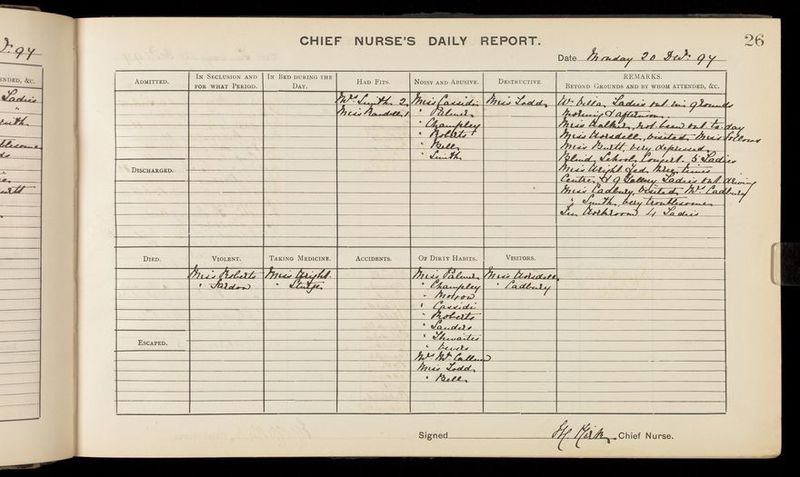 D: 97
26
CHIEF NURSE'S DAILY REPORT.
Date Monday 20 Dec: 97
ENDED, &C.
ADMITTED.
IN SECLUSION AND FOR WHAT PERIOD.
IN BED DURING THE DAY.
HAD FITS.
NOISY AND ABUSIVE.
DESTRUCTIVE.
REMARKS.
BEYOND GROUNDS AND BY WHOM ATTENDED, &C.
Mrs Smith. 2
Miss Randell. 1
Miss Cassidi
" Palmer
" Champley
" Roberts
" Bell
" Smith.
Miss Todd
W. Villa. Ladies out in grounds
morning & afternoon.
Miss Walker, not been out to-day
Miss Worsdell, visited Miss
Miss Burtt, very depressed.
School Concert. 5 Ladies
Miss Wright fed three times
Centre, & Gallery Ladies out driving
Miss Cadbury, visited Mrs Cadbury
" Smith, very troublesome
In Workroom 14 Ladies
DISCHARGED.
DIED.
VIOLENT.
TAKING MEDICINE.
ACCIDENTS.
OF DIRTY HABITS.
VISITORS.
Miss Roberts
" Sardon
Miss Wright.
" Sturge
Miss Palmer
" Champley
" Cassidi
" Roberts
" Sanders
" Thwaites
Miss Todd
" Bell
Miss Worsdell
" Cadbury
ESCAPED.
Signed H Kirk Chief Nurse.